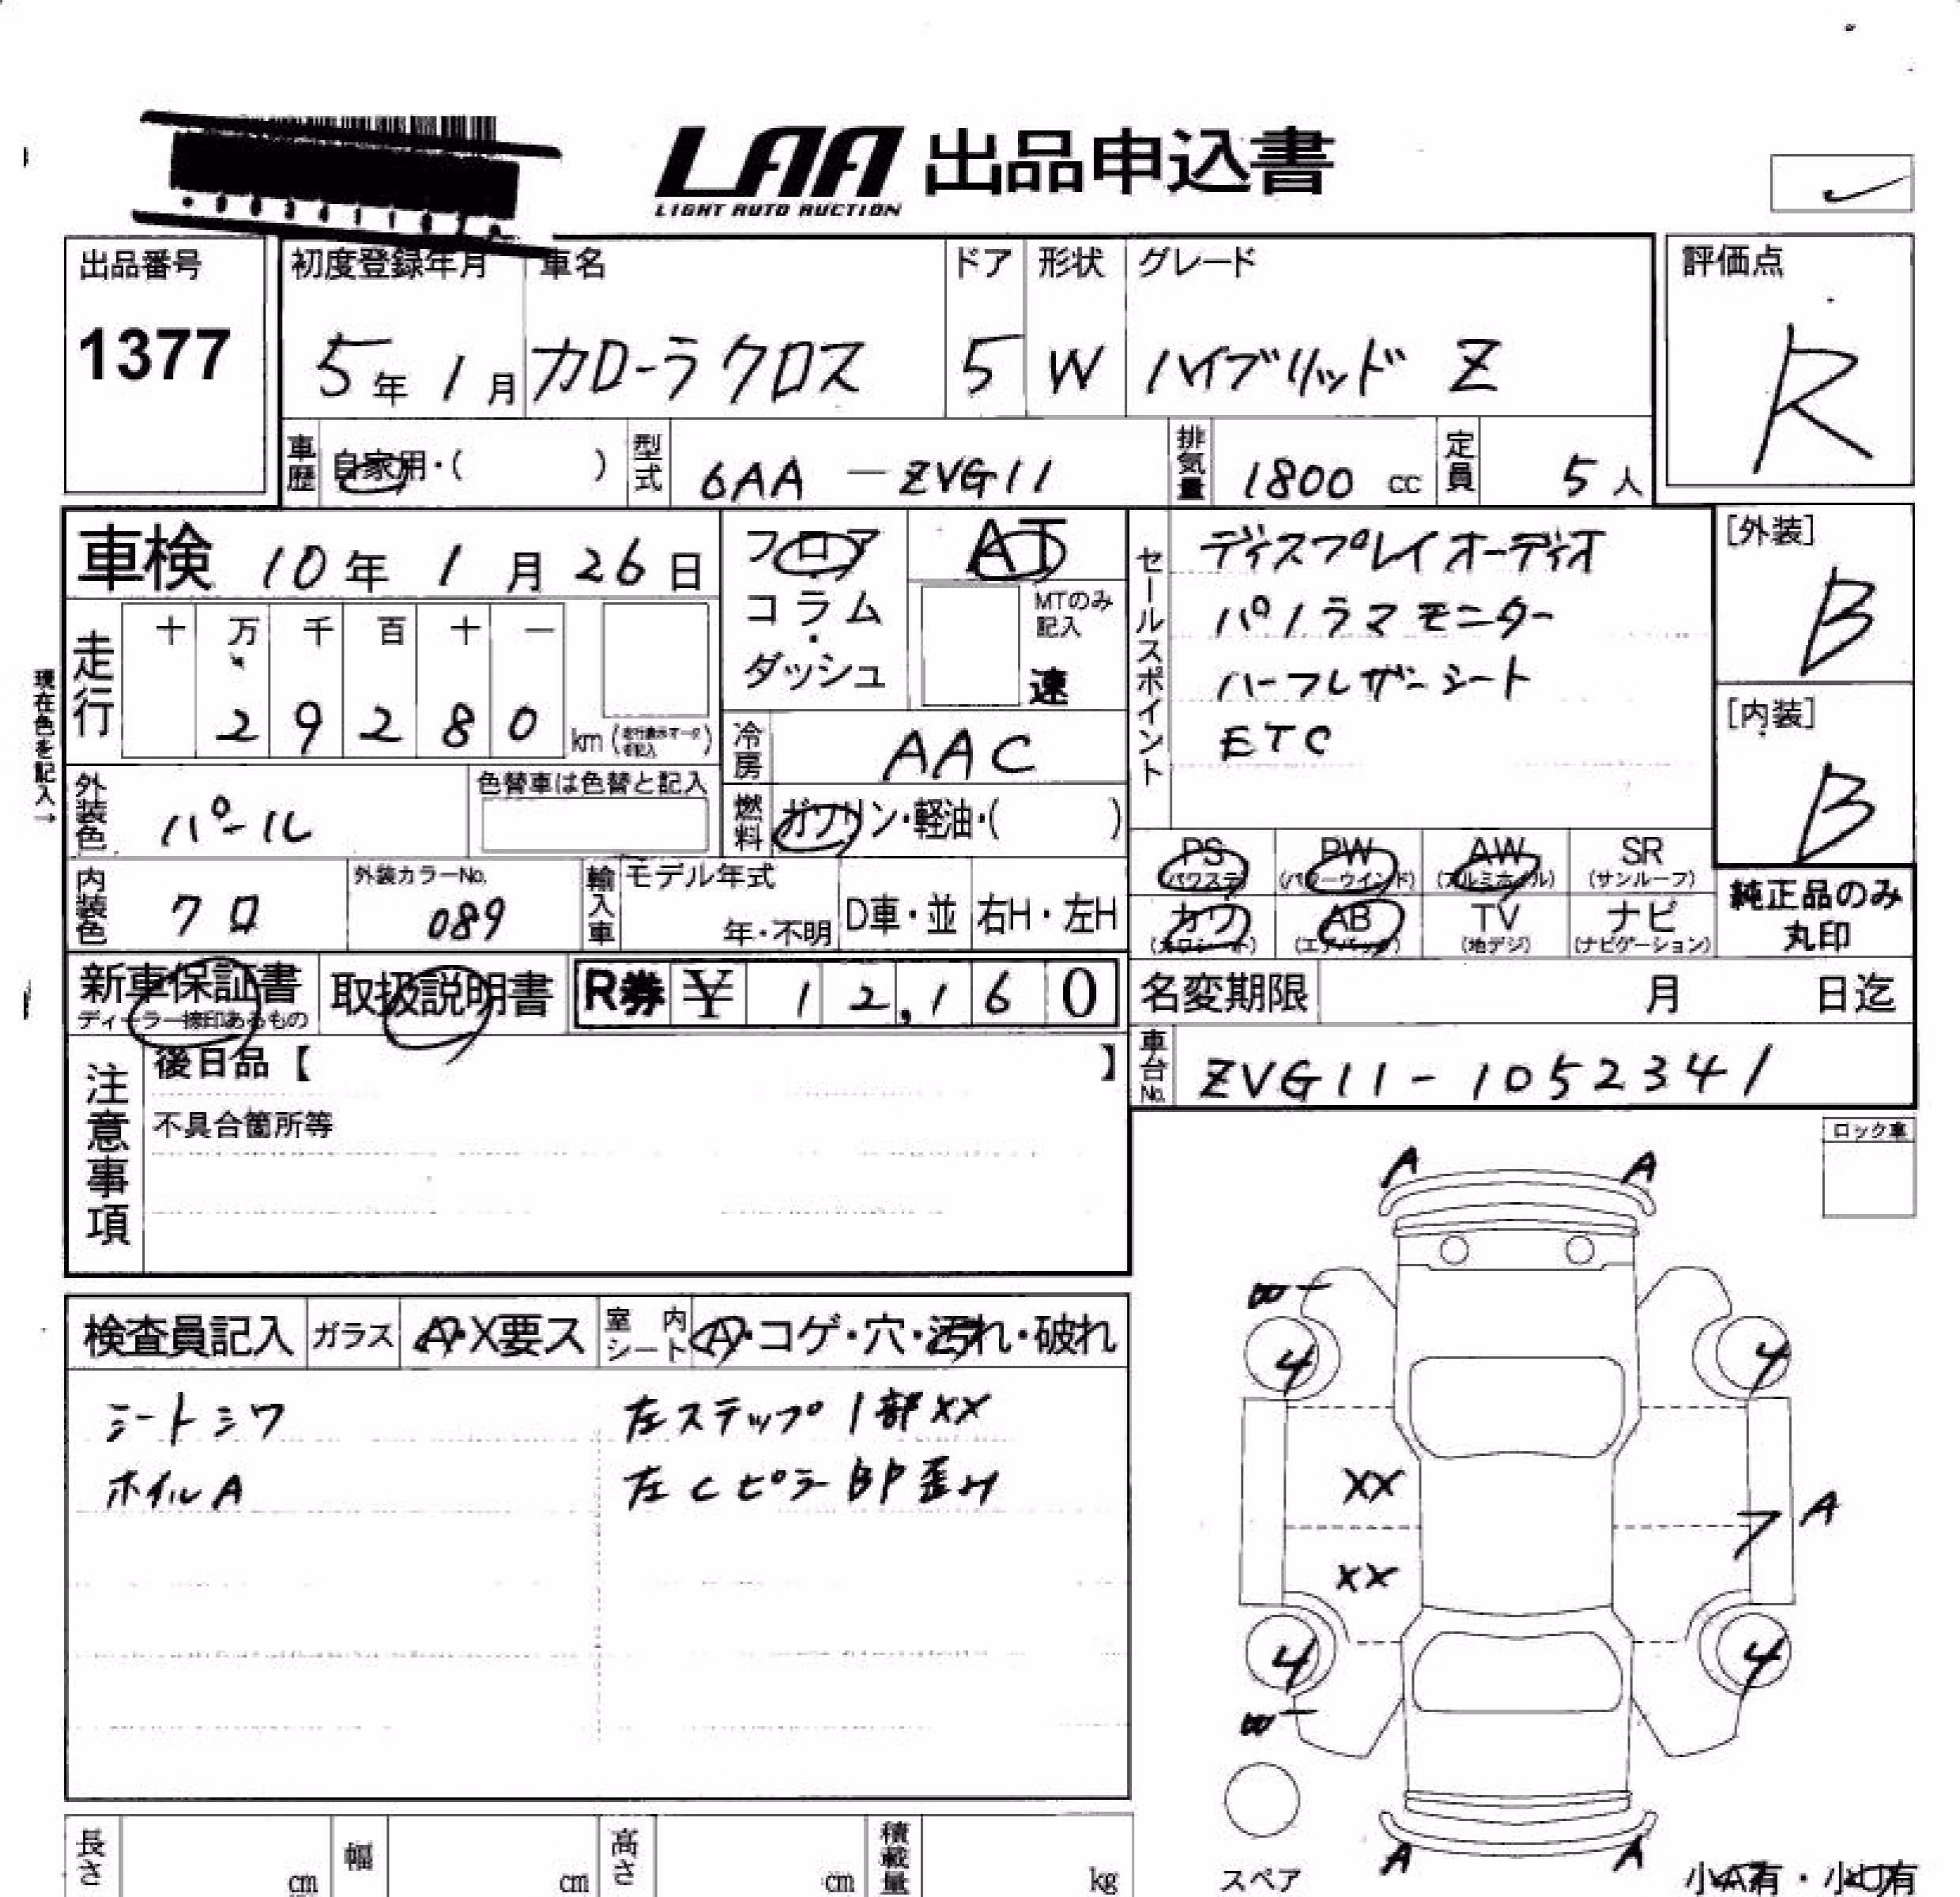 LAA 出品申込書
LIGHT AUTO AUCTION
出品番号
1377
初度登録年月
5年 1月
車名
カローラクロス
ドア
5
形状
W
グレード
ハイブリッド Z
評価点
R
車歴
自家用・( )
型式
6AA - ZVG11
排気量
1800 cc
定員
5人
車検 10年 1月 26日
走行
十 万 千 百 十 一
2 9 2 8 0 km
現在色を記入→
外装色
パール
色替車は色替と記入
内装色
クロ
外装カラーNo.
089
フロア
コラム
・
ダッシュ
AT
MTのみ
記入
速
冷房
AAC
燃料
ガソリン・軽油・( )
輸入車
モデル年式
年・不明
D車・並
右H・左H
セールスポイント
ディスプレイオーディオ
パノラマモニター
ハーフレザーシート
ETC
[外装]
B
[内装]
B
PS
(パワステ)
PW
(パワーウインド)
AW
(アルミホイル)
SR
(サンルーフ)
カワ
(カワシート)
AB
(エアバック)
TV
(地デジ)
ナビ
(ナビゲーション)
純正品のみ
丸印
新車保証書
ディーラー捺印あるもの
取扱説明書
R券 ¥ 12,160
名変期限 月 日迄
車台No.
ZVG11-1052341
注意事項
後日品【 】
不具合箇所等
ロック車
検査員記入
ガラス
A・X要ス
室内
シート
A・コゲ・穴・汚れ・破れ
シートシワ
ホイルA
左ステップ1部XX
左Cピラー BP歪み
A A
4 4
XX
A
XX
4 4
A A
スペア
小A有・小U有
長さ cm
幅 cm
高さ cm
積載量 kg